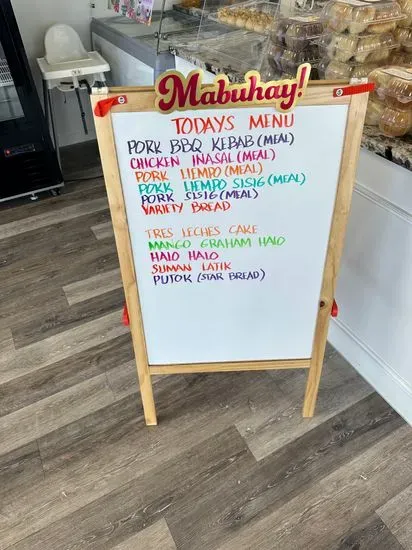 Mabuhay!
TODAYS MENU
PORK BBQ KEBAB (MEAL)
CHICKEN INASAL (MEAL)
PORK LIEMPO (MEAL)
PORK LIEMPO SISIG (MEAL)
PORK SISIG (MEAL)
VARIETY BREAD
TRES LECHES CAKE
MANGO GRAHAM HALO
HALO HALO
SUMAN LATIK
PUTOK (STAR BREAD)